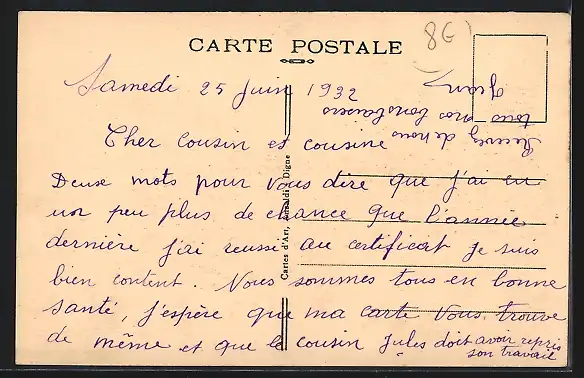 CARTE POSTALE
8G
Samedi 25 Juin 1932
Cher cousin et cousine
Deux mots pour vous dire que j'ai eu
un peu plus de chance que l'année
dernière j'ai reussi au certificat je suis
bien content. Nous sommes tous en bonne
santé, j'espère que ma carte vous trouve
de même et que le cousin Jules doit avoir repris
son travail
Recevez de nous
tous nos bons baisers
Cartes d'Art, Digne